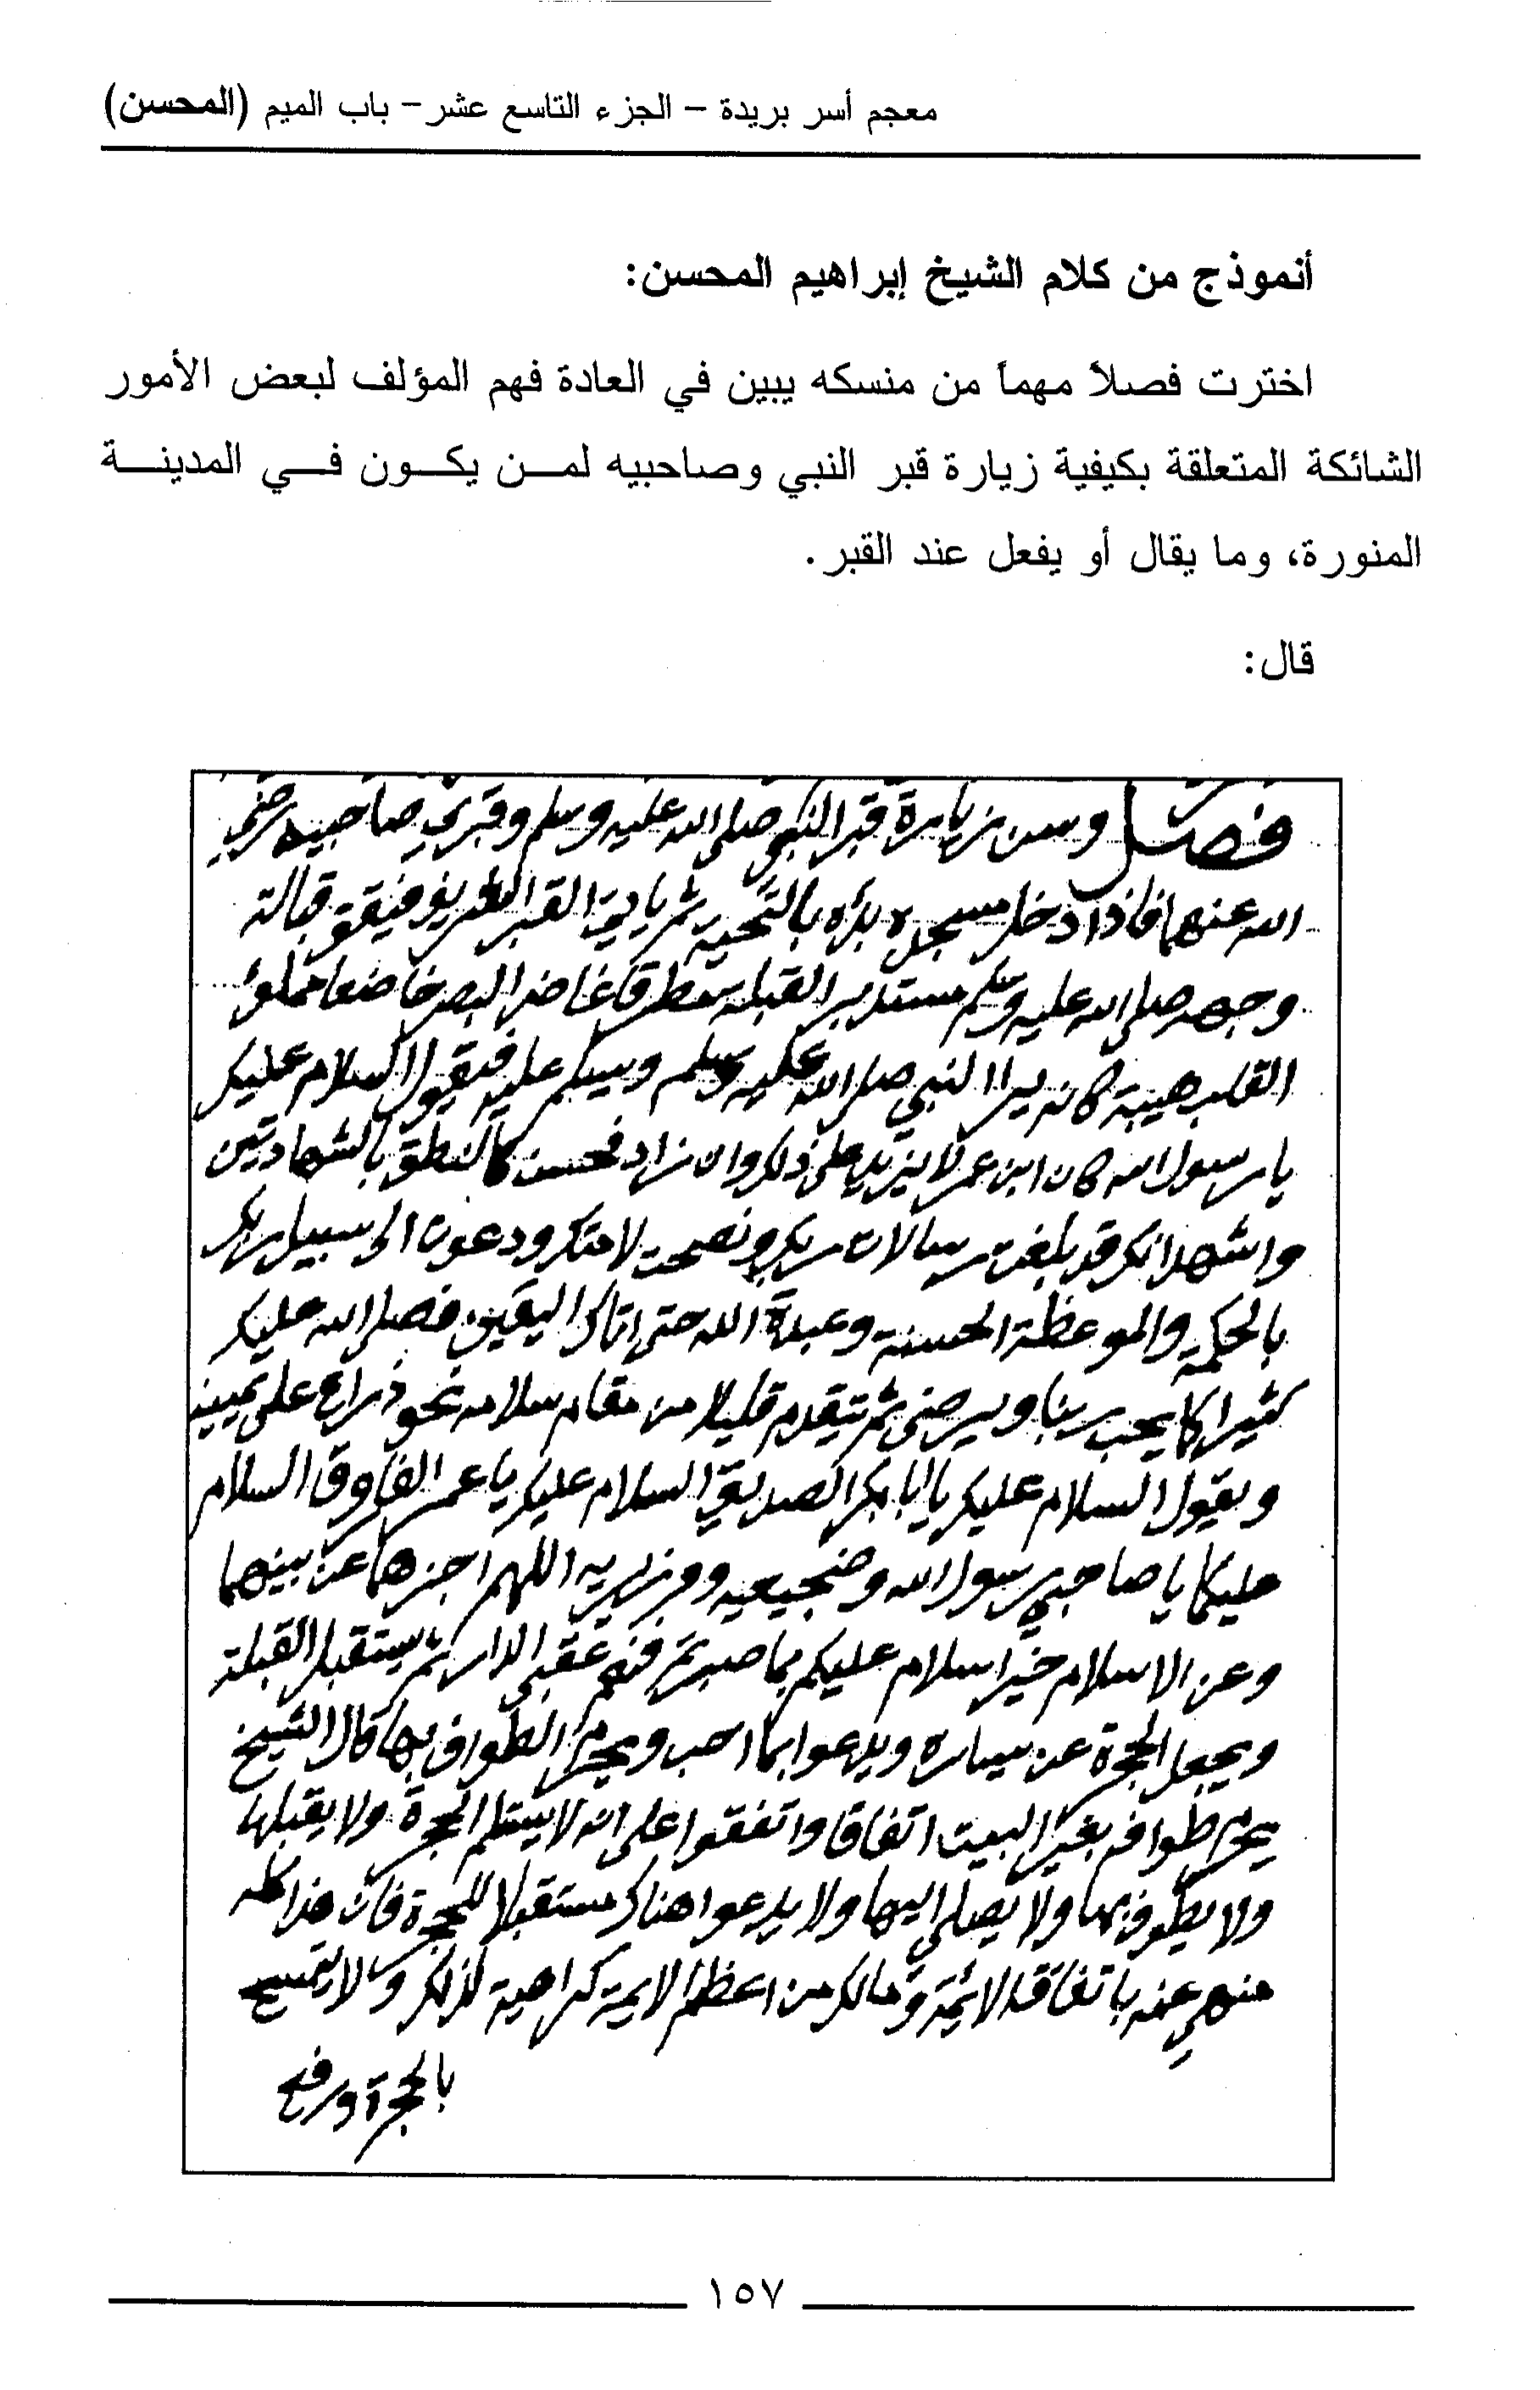 معجم أسر بريدة – الجزء التاسع عشر – باب الميم (المحسن)
أنموذج من كلام الشيخ إبراهيم المحسن:
اخترت فصلاً مهماً من منسكه يبين في العادة فهم المؤلف لبعض الأمور
الشائكة المتعلقة بكيفية زيارة قبر النبي وصاحبيه لمن يكون في المدينة
المنورة، وما يقال أو يفعل عند القبر.
قال:
فصل وسن زيارة قبر النبي صلى الله عليه وسلم وقبري صاحبيه رضي
الله عنهما فاذا دخل مسجده بدأه بالتحية ثم يأتي القبر الشريف فيقف قبالة
وجهه صلى الله عليه وسلم مستدبر القبلة مطرقا غاض البصر خاضعا مملوء
القلب هيبة كانه يرا النبي صلى الله عليه وسلم ويسلم عليه فيقول السلام عليك
يا رسول الله كان ابن عمر لا يزيد على ذلك وان زاد فحسن كالنطق بالشهادتين
واشهد انك قد بلغت رسالات ربك ونصحت لامتك ودعوت الى سبيل ربك
بالحكمة والموعظة الحسنة وعبدة الله حتى اتاك اليقين فصلى الله عليك
كثيرا كما يحب ربنا ويرضى ثم يتقدم قليلا من مقام سلامه نحو ذراع على يمينه
ويقول السلام عليك يا ابا بكر الصديق السلام عليك يا عمر الفاروق السلام
عليكما يا صاحبي رسول الله وضجيعيه ووزيريه اللهم اجزهما عن نبيهما
وعن الاسلام خيرا سلام عليكم بما صبرتم فنعم عقبى الدار ثم يستقبل القبلة
ويجعل الحجرة عن يساره ويدعوا بما احب ويحرم الطواف بها قال الشيخ
يحرم طوافه بغير البيت اتفاقا واتفقوا على انه لا يستلم الحجرة ولا يقبلها
ولا يطوف بها ولا يصلي اليها ولا يدعوا هناك مستقبلا للحجرة فان هذا كله
منهي عنه باتفاق الائمة ومالك من اعظم الايمة كراهية لذلك ولا يتمسح
بالحجرة ورفع
١٥٧